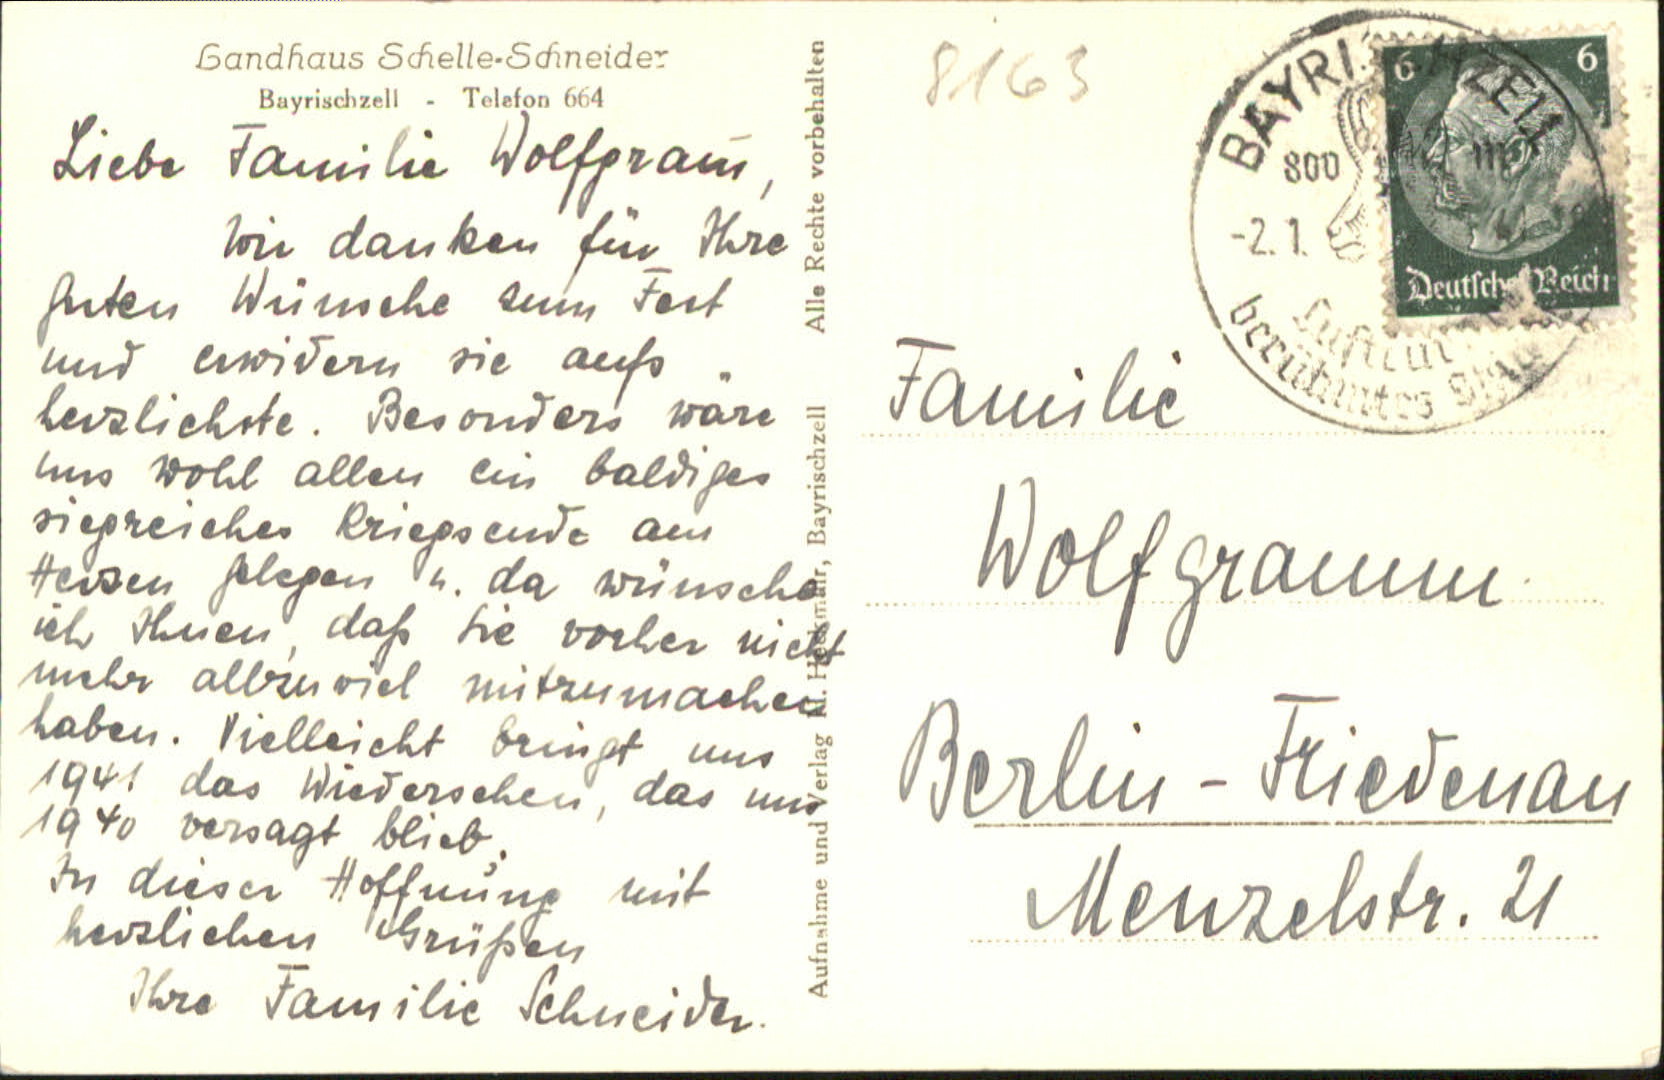 Landhaus Schelle-Schneider
Bayrischzell - Telefon 664
Liebe Familie Wolfgram̅,
Wir danken für Ihre
guten Wünsche zum Fest
und erwidern sie aufs
herzlichste. Besonders wäre
uns wohl allen ein baldiges
siegreiches Kriegsende am
Herzen gelegen u. da wünsche
ich Ihnen, daß Sie vorher nicht
mehr allzuviel mitzumachen
haben. Vielleicht bringt uns
1941 das Wiedersehen, das uns
1940 versagt blieb.
In dieser Hoffnung mit
herzlichen Grüßen
Ihre Familie Schneider.
Aufnahme und Verlag H. Heckmair, Bayrischzell Alle Rechte vorbehalten
8163
6 6
Deutsches Reich
800 m
-2.1.
berühmtes
Familie
Wolfgramm
Berlin-Friedenau
Menzelstr. 21